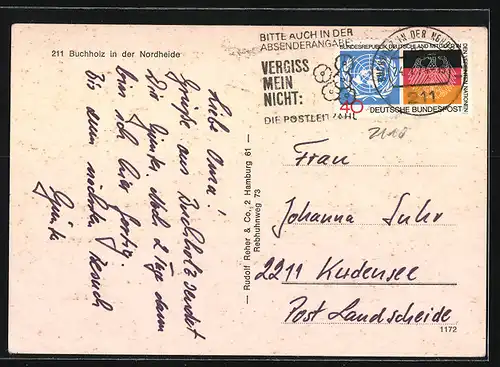 211 Buchholz in der Nordheide
BITTE AUCH IN DER
ABSENDERANGABE
VERGISS
MEIN
NICHT:
DIE POSTLEITZAHL
BUNDESREPUBLIK DEUTSCHLAND MITGLIED IN
DEN VEREINTEN NATIONEN
40
DEUTSCHE BUNDESPOST
IN DER NORDHEIDE
211
Liebe Omna!
Grüße aus Buchholz sendet
Die Gynter. Noch 2 Tage dann
bin ich hier fertig.
Bis dann nächster Besuch
— Rudolf Reher & Co., 2 Hamburg 61 —
Rebhuhnweg 73
Frau
Johanna Suhr
2211 Kudensee
Post Landscheide
1172